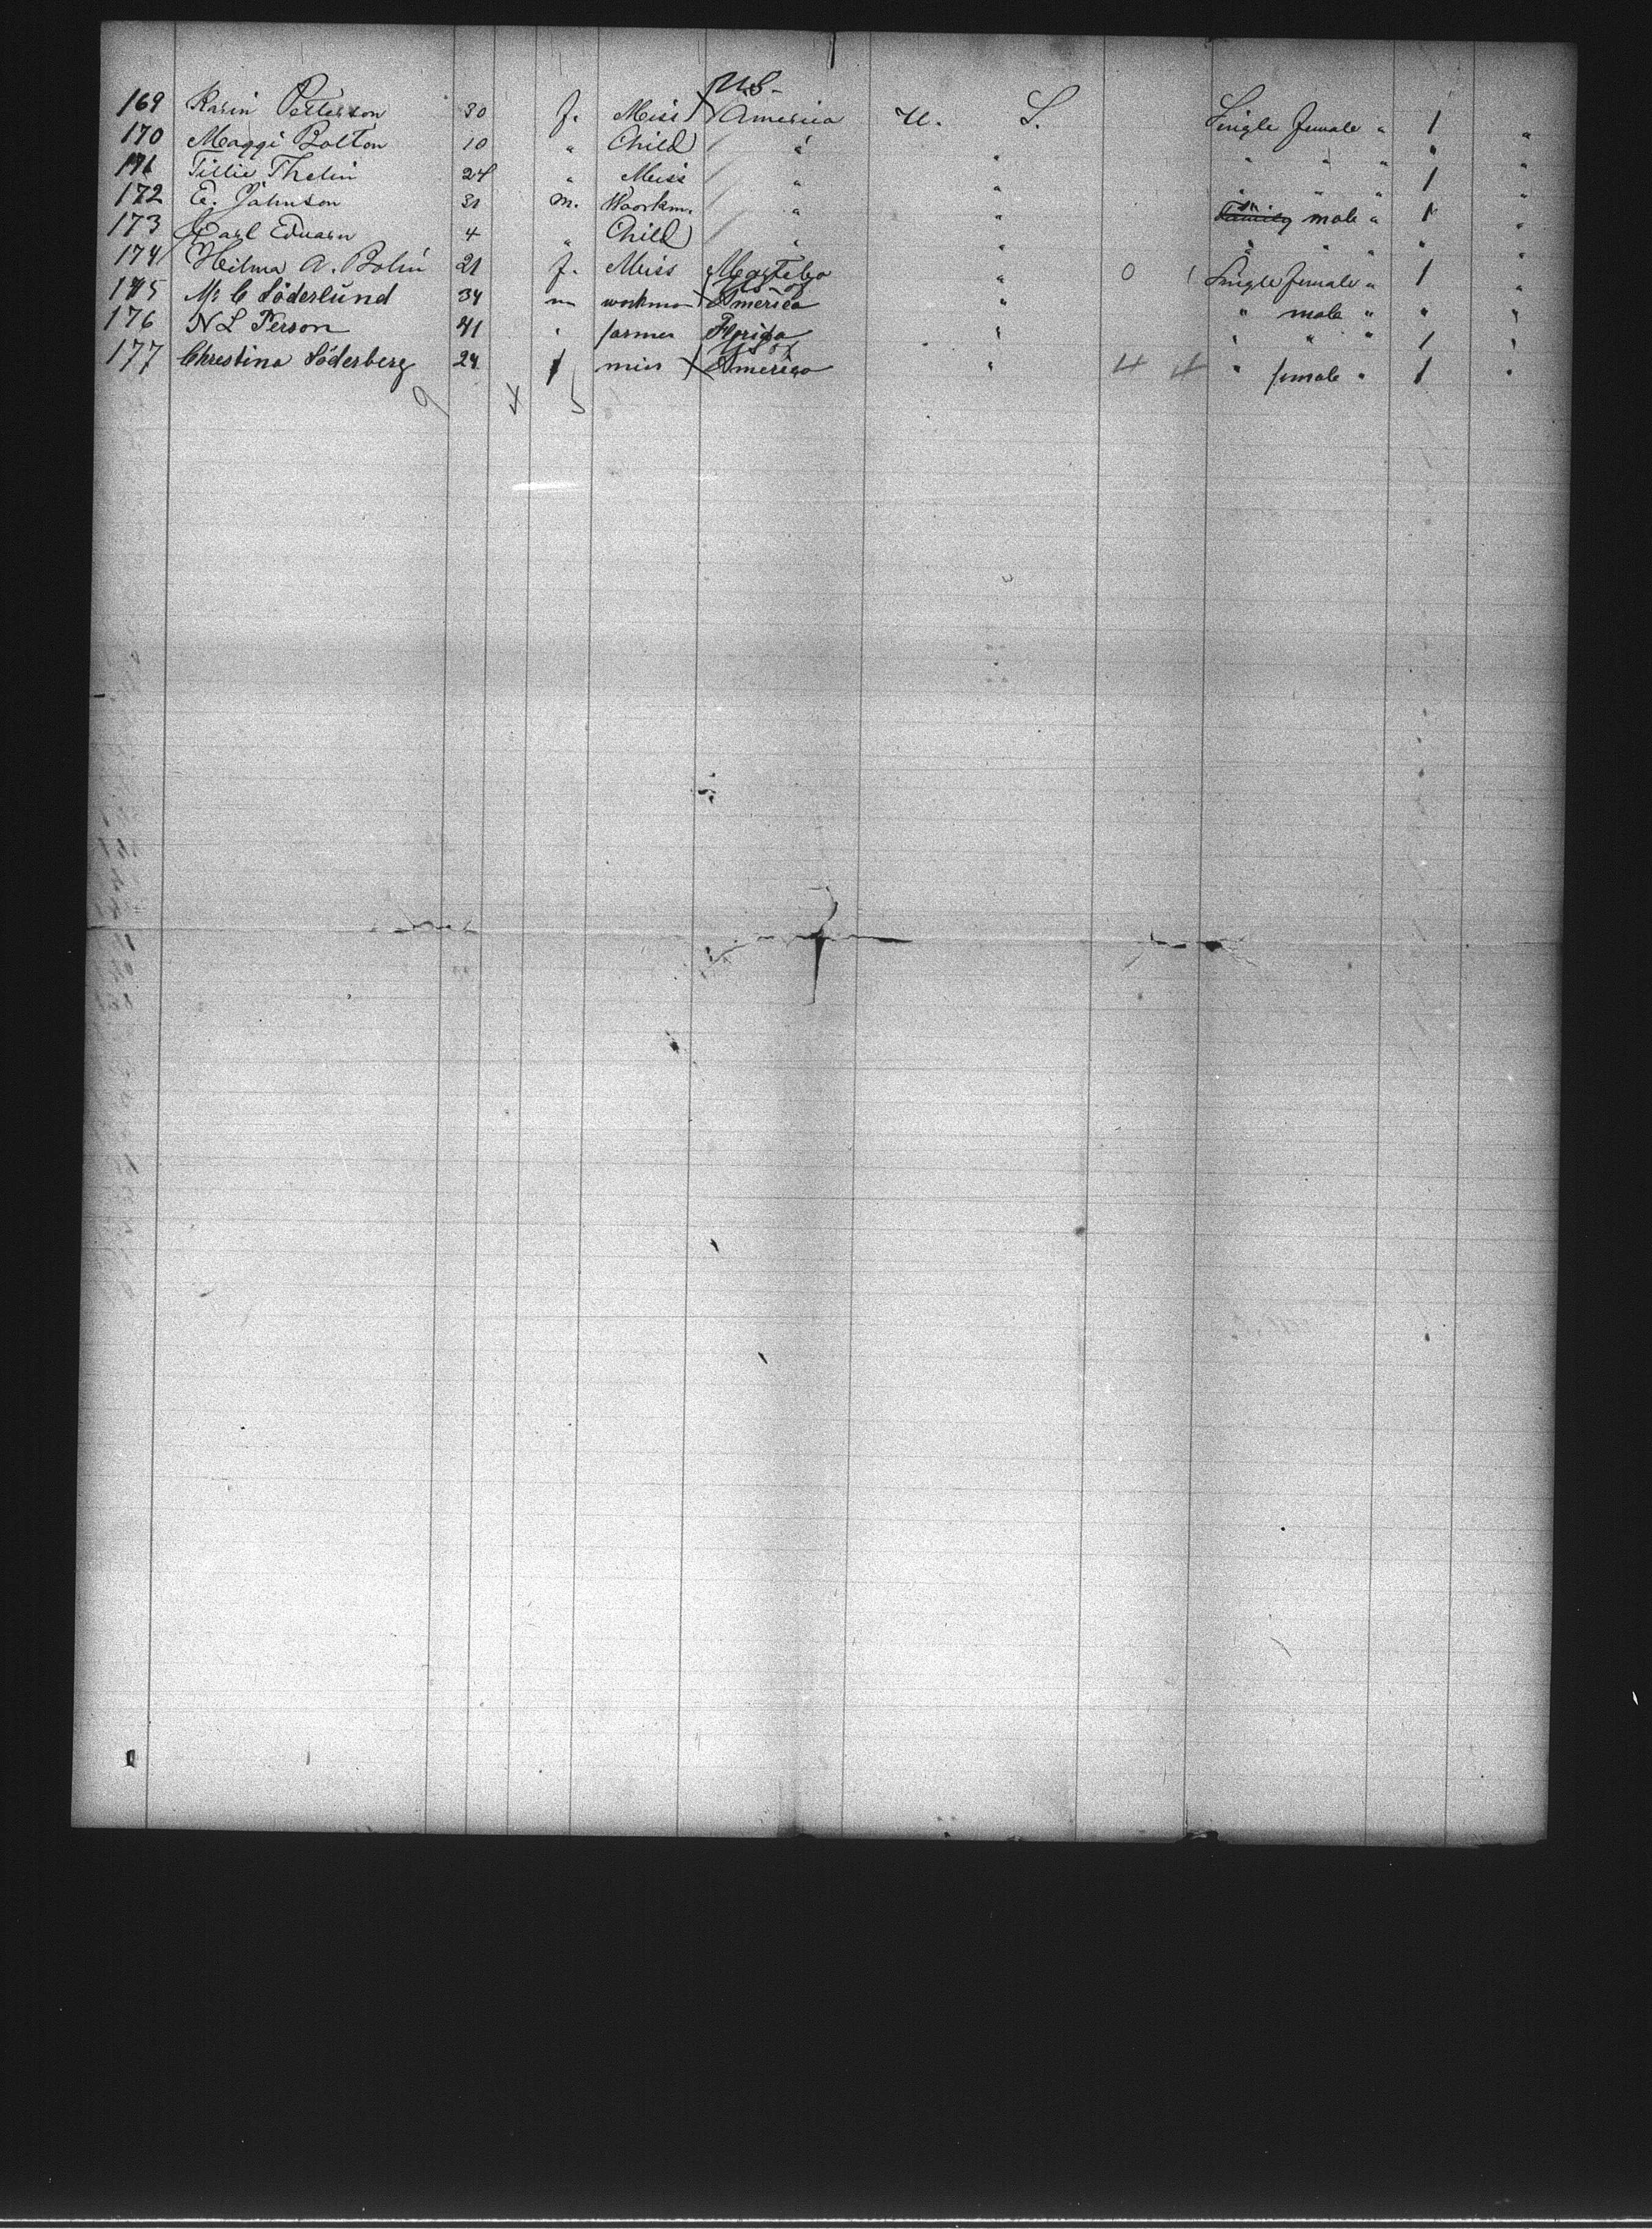 U.S.
169 Karin Petterson 30 f. Miss America U. S. Single female " 1 "
170 Maggi Bolton 10 " Child " " " " " " "
171 Tillie Thelin 24 " Miss " " " " " 1 "
172 E. Johnson 31 m. Woorkm. " " male " 1 "
173 Carl Eduarn 4 " Child " " " " " " "
174 Hilma A. Bolin 21 f. Miss " 0 1 Single female " 1 "
US of
175 Mr C Söderlund 34 m workman America " " male " " "
176 N L Person 41 " farmer Florida " " " " 1 "
US of
177 Christina Söderberg 24 f miss America " 4 4 " female " 1 "
9 4 5